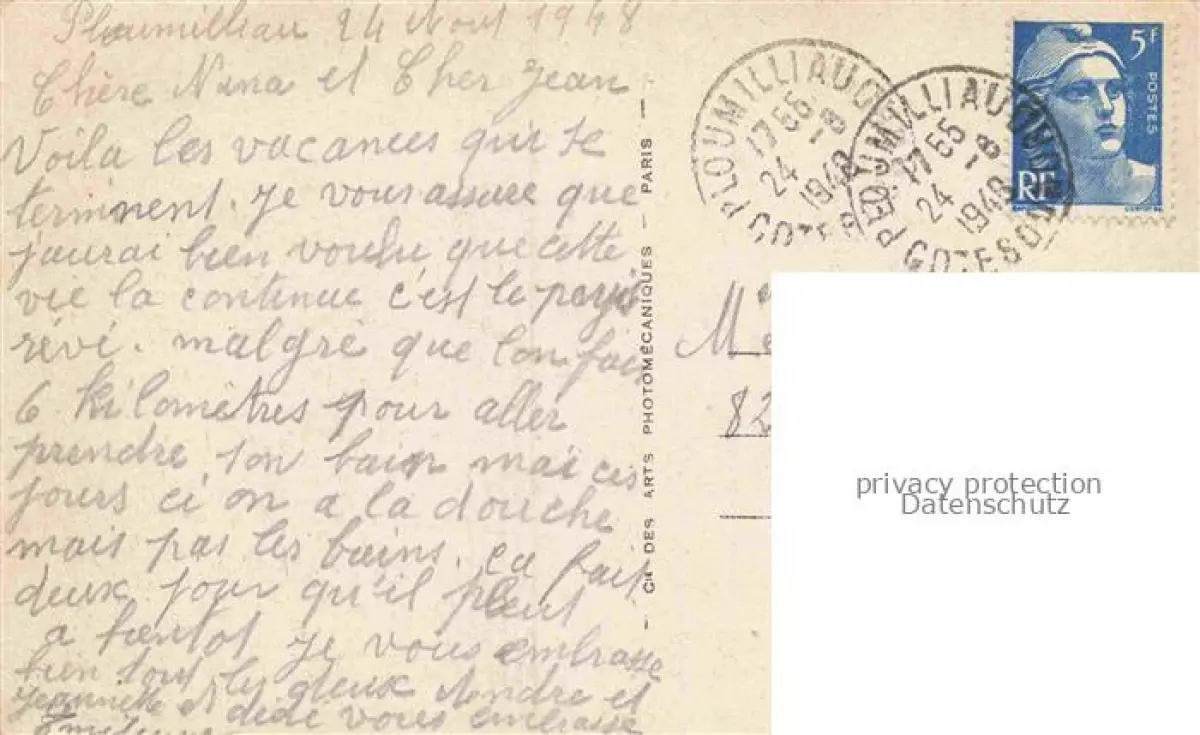 Ploumilliau 24 Aout 1948
Chère Nana et Cher Jean
Voila les vacances qui se
terminent. Je vous assure que
jaurai bien voulu que cette
vie la continue c'est le pays
révé. malgré que lon fac
6 kilomètres pour aller
prendre son bain mais ces
jours ci on a la douche
mais pas les bains. ca fait
deux jour qu'il pleut
a bientot je vous embrasse
bien tout les deux Andre et
Jeannette dédé vous embrasse
— CIE DES ARTS PHOTOMÉCANIQUES — PARIS —
PLOUMILLIAU
17 55
24 -8
1948
COTES DU
PLOUMILLIAU
17 55
24 -8
1948
COTES DU
5F
POSTES
RF
82
privacy protection
Datenschutz